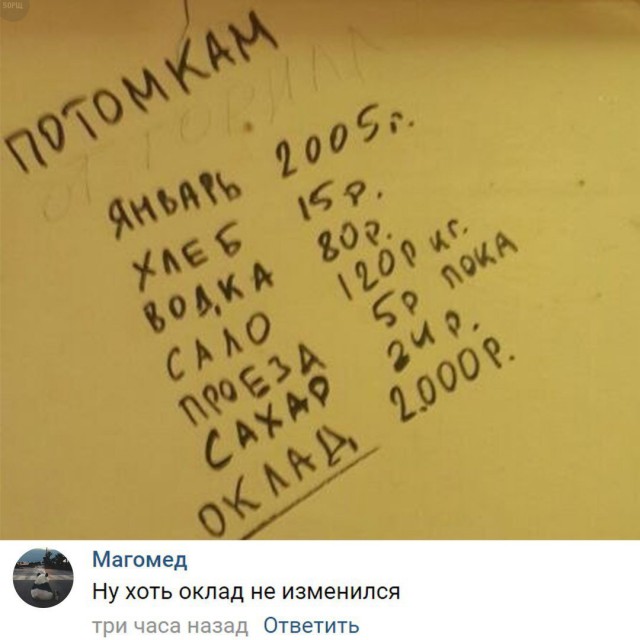 БОРЩ
ПОТОМКАМ
ОТ ГОРИЛЛ
ЯНВАРЬ 2005г.
ХЛЕБ 15р.
ВОДКА 80р.
САЛО 120р кг.
ПРОЕЗД 5р ПОКА
САХАР 24р.
ОКЛАД 2.000р.
Магомед
Ну хоть оклад не изменился
три часа назад Ответить